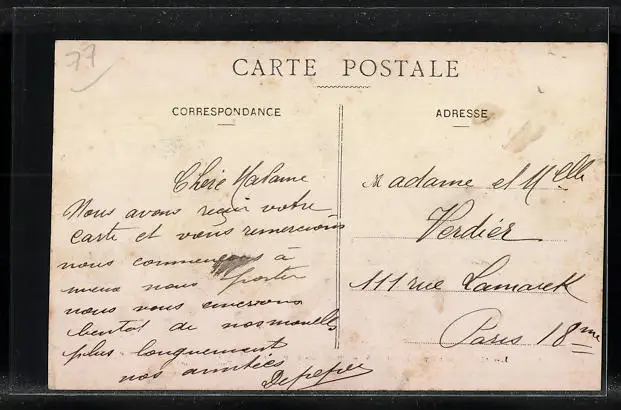 77
CARTE POSTALE
CORRESPONDANCE
ADRESSE
Chère Madame
Nous avons reçu votre
carte et vous remercions
nous commençons à
mieux nous porter
nous vous
bientot de nos nouvelles
plus longuement
nos amitiées
Madame et Melle
Verdier
111 rue Lamarck
Paris 18me